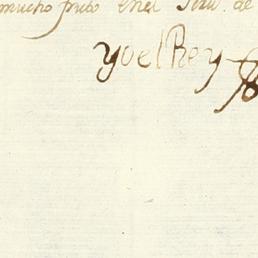 mucho fruto en el Serv. de
yo el Rey